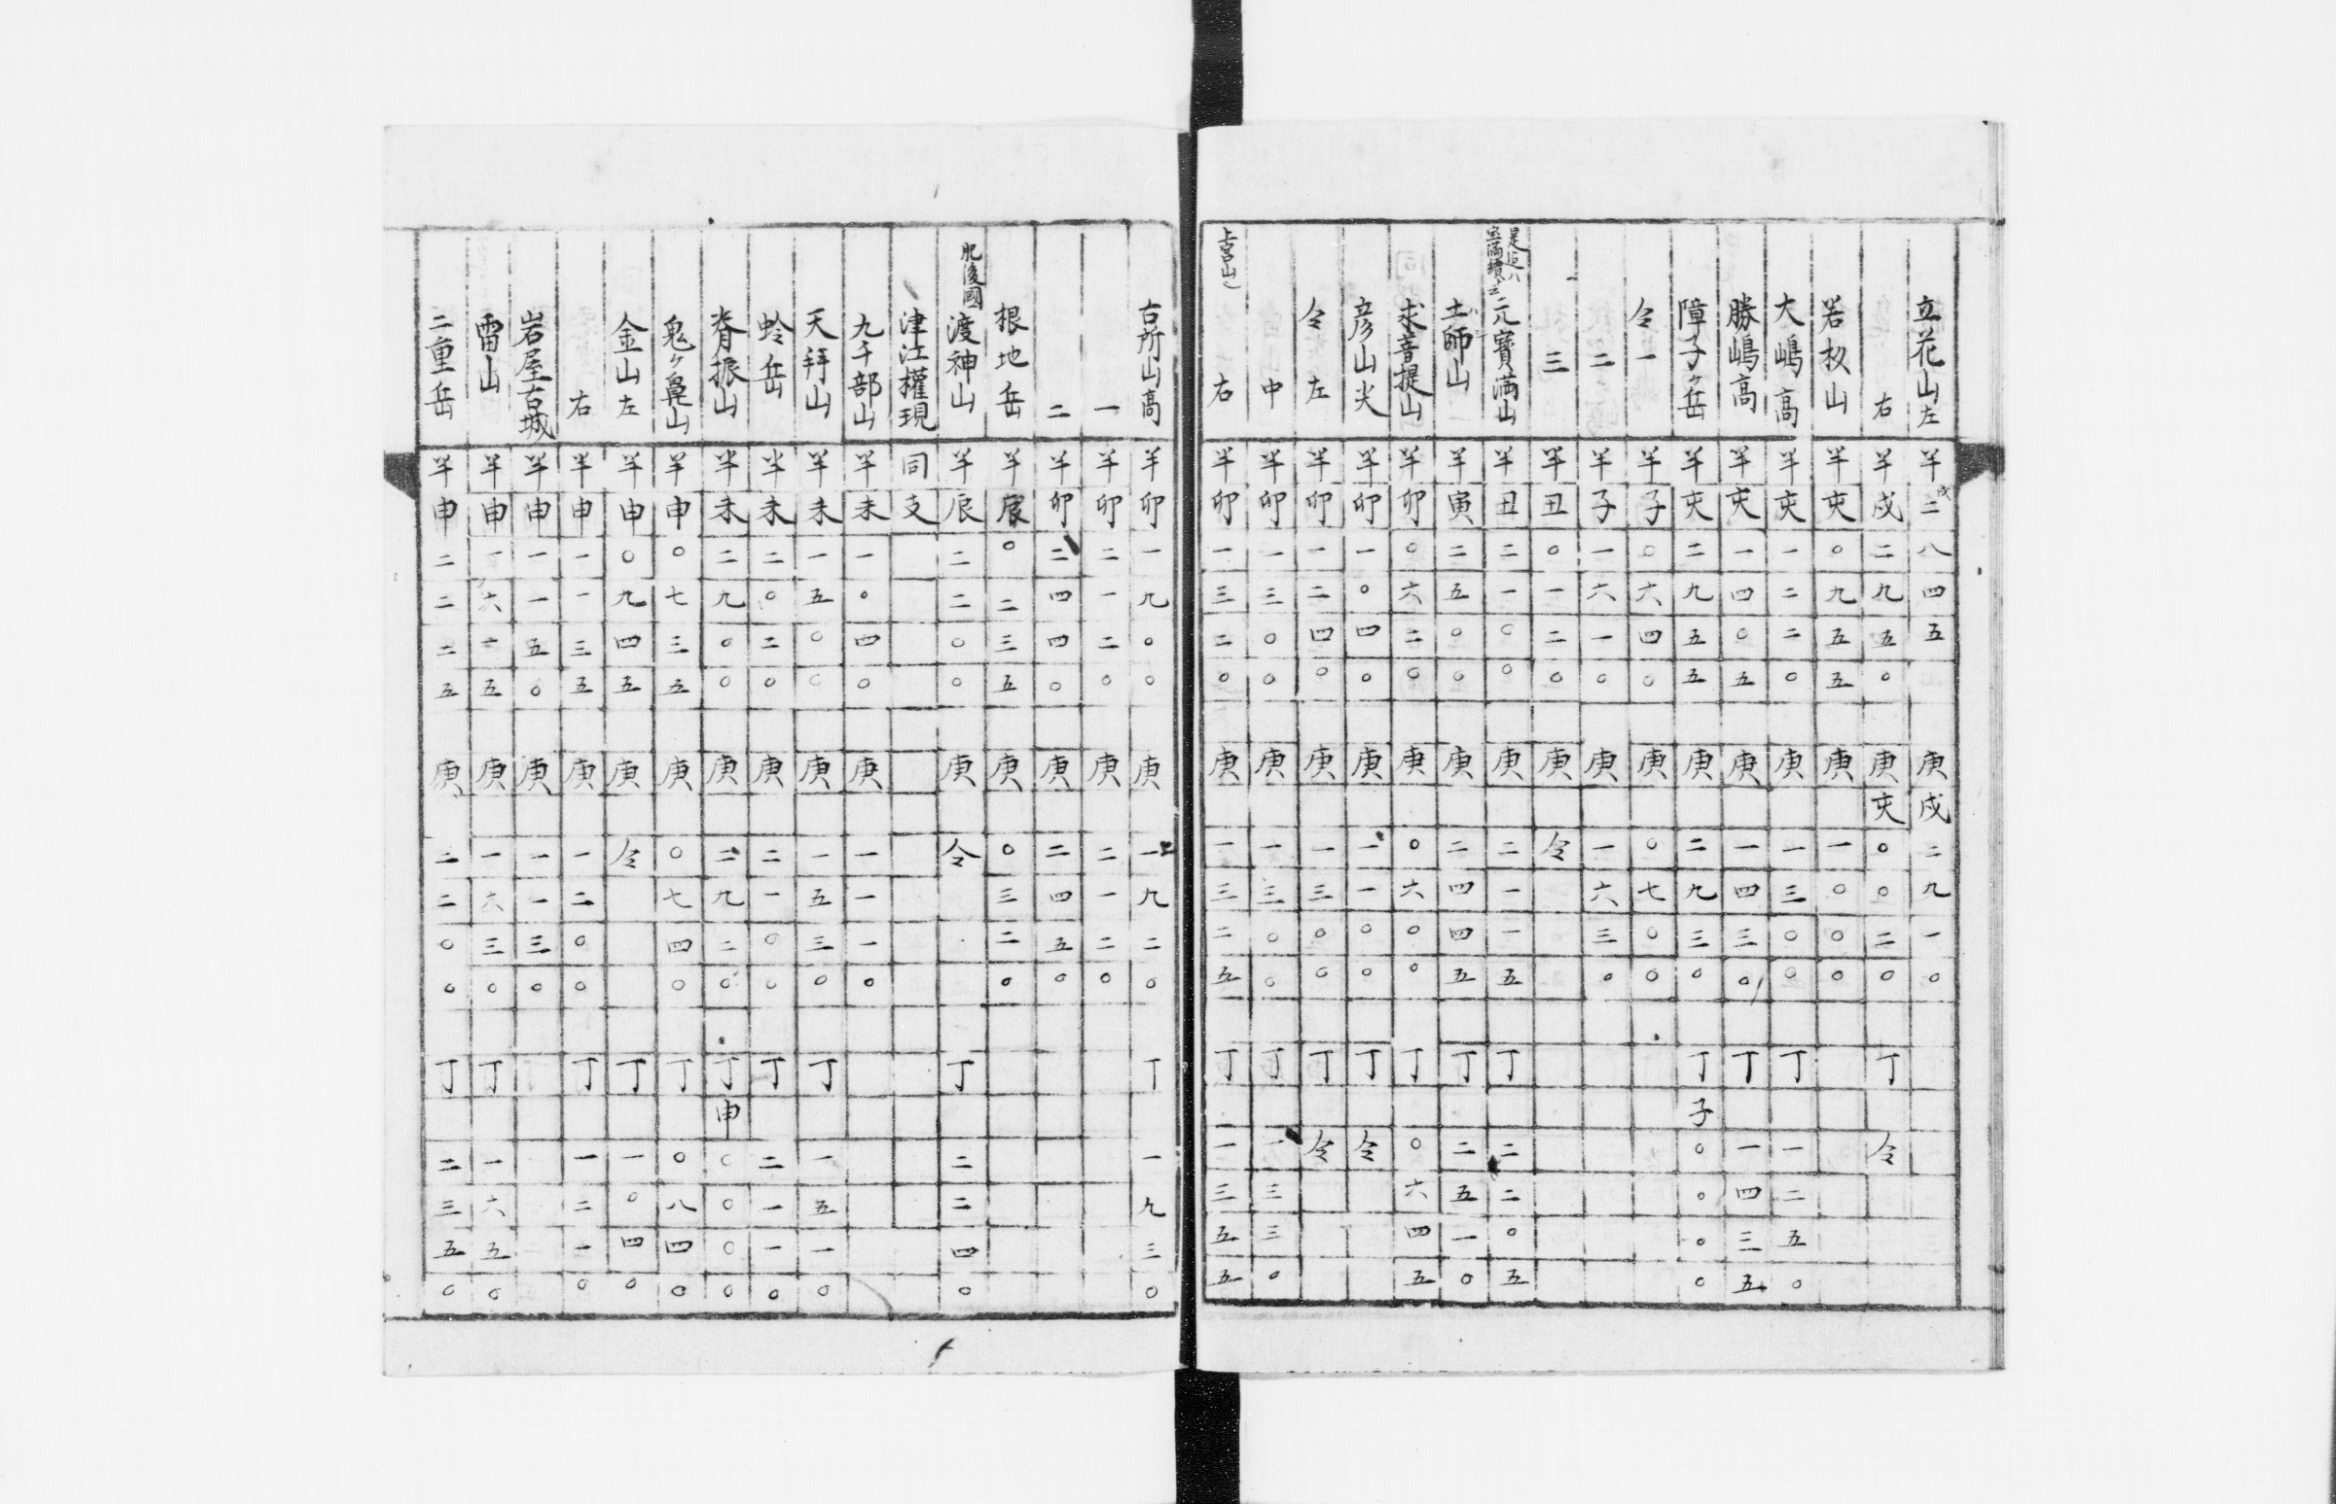 立花山左 半 戌 二 八 四 五 庚 戌 二 九 一 〇
右 半 戌 二 九 五 〇 庚 亥 〇 〇 二 〇 丁 仝
若杦山 半 亥 〇 九 五 五 庚 一 〇 〇 〇
大嶋高 半 亥 一 二 二 〇 庚 一 三 〇 〇 丁 一 二 五 〇
勝嶋高 半 亥 一 四 〇 五 庚 一 四 三 〇 丁 一 四 三 五
障子ヶ岳 半 亥 二 九 五 五 庚 二 九 三 〇 丁 子 〇 〇 〇 〇
仝一 半 子 〇 六 四 〇 庚 〇 七 〇 〇
二 半 子 一 六 一 〇 庚 一 六 三 〇
三 半 丑 〇 一 二 〇 庚 仝
元寳満山 半 丑 二 一 〇 〇 庚 二 一 一 五 丁 二 二 〇 五
土師山 半 寅 二 五 〇 〇 庚 二 四 四 五 丁 二 五 一 〇
求菩提山 半 卯 〇 六 二 〇 庚 〇 六 〇 〇 丁 〇 六 四 五
彦山尖 半 卯 一 〇 四 〇 庚 一 一 〇 〇 丁 仝
仝左 半 卯 一 二 四 〇 庚 一 三 〇 〇 丁 仝
中 半 卯 一 三 〇 〇 庚 一 三 〇 〇 丁 一 三 三 〇
上宮山 右 半 卯 一 三 二 〇 庚 一 三 二 五 丁 一 三 五 五
古所山高 半 卯 一 九 〇 〇 庚 一 九 二 〇 丁 一 九 三 〇
一 半 卯 二 一 二 〇 庚 二 一 二 〇
二 半 卯 二 四 四 〇 庚 二 四 五 〇
根地岳 半 辰 〇 二 三 五 庚 〇 三 二 〇
肥後國 渡神山 半 辰 二 二 〇 〇 庚 仝 丁 二 二 四 〇
津江權現 同 支
九千部山 半 未 一 〇 四 〇 庚 一 一 一 〇
天拜山 半 未 一 五 〇 〇 庚 一 五 三 〇 丁 一 五 一 〇
蛤岳 半 未 二 〇 二 〇 庚 二 一 〇 〇 丁 二 一 一 〇
脊振山 半 未 二 九 〇 〇 庚 二 九 二 〇 丁 申 〇 〇 〇 〇
鬼ヶ鼻山 半 申 〇 七 三 五 庚 〇 七 四 〇 丁 〇 八 四 〇
金山左 半 申 〇 九 四 五 庚 仝 丁 一 〇 四 〇
右 半 申 一 一 三 五 庚 一 二 〇 〇 丁 一 二 一 〇
岩屋古城 半 申 一 一 五 〇 庚 一 一 三 〇
雷山 半 申 一 六 二 五 庚 一 六 三 〇 丁 一 六 五 〇
二重岳 半 申 二 二 二 五 庚 二 二 〇 〇 丁 二 三 五 〇